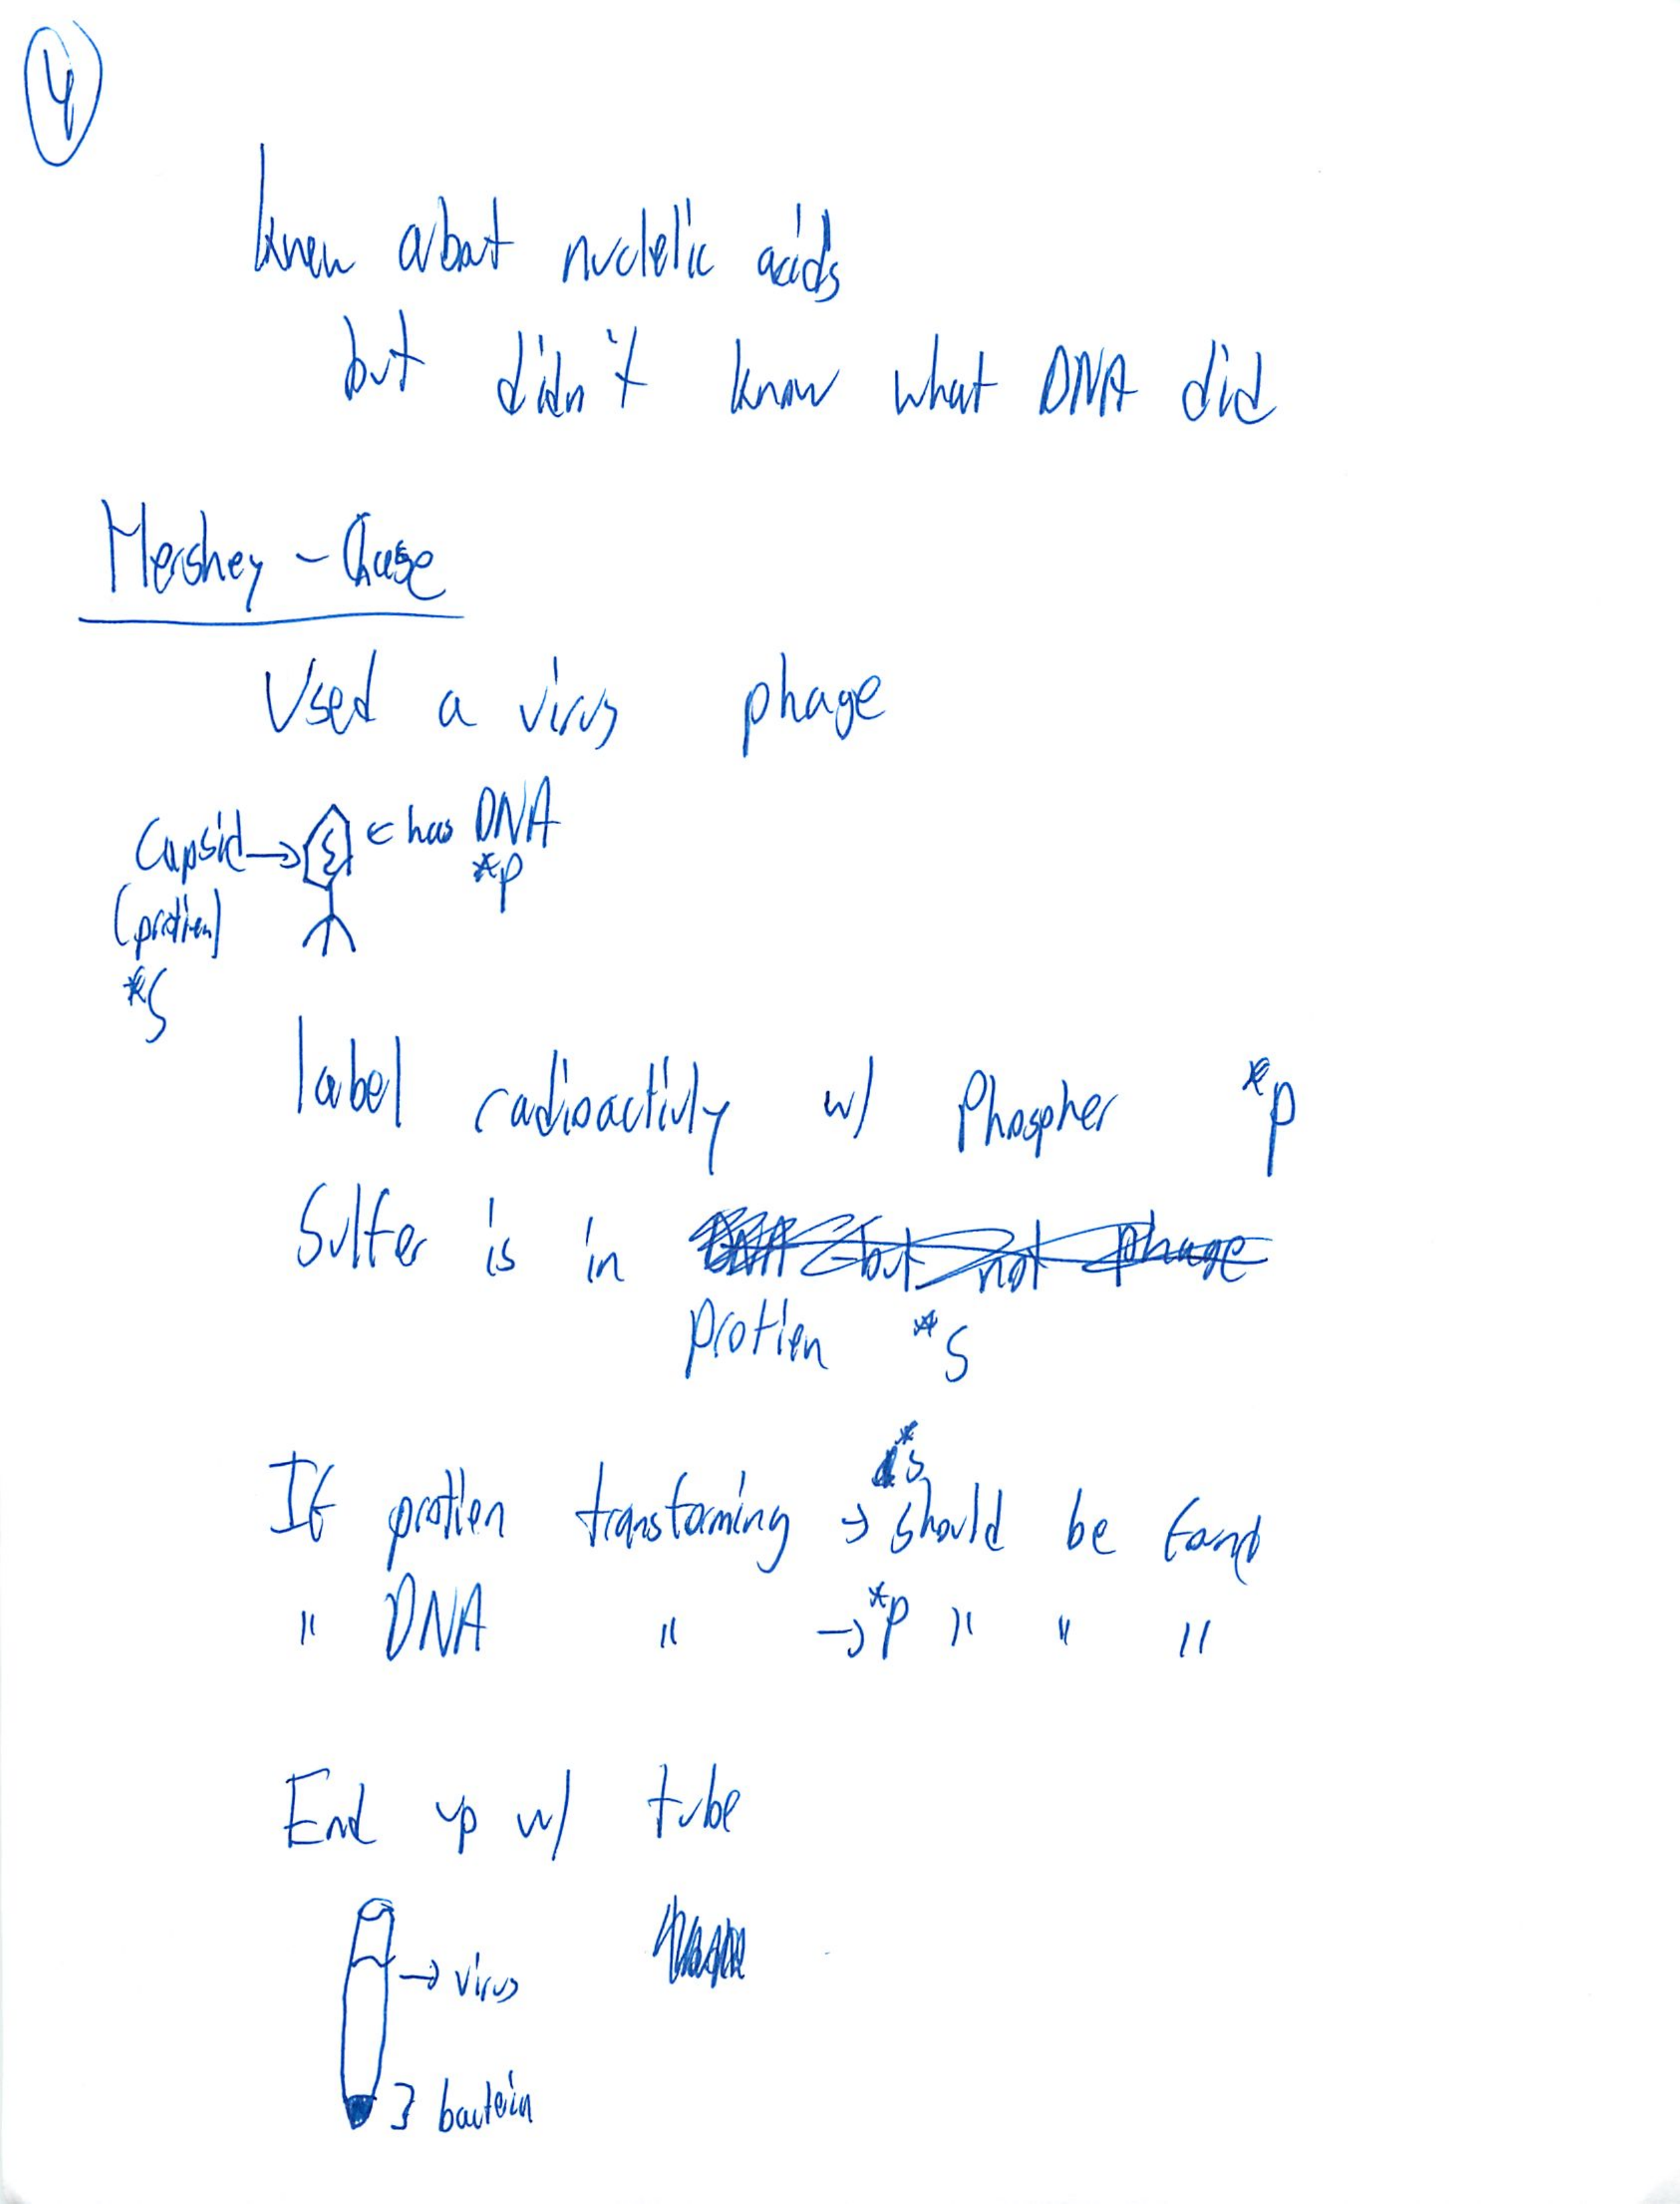 4
knew about nucleic acids
but didn't know what DNA did
Hershey - Chase
Used a virus phage
Capsid → ← has DNA
*P
(protien)
*S
label radioactivly w/ Phospher *P
Sulfer is in
protien *S
*S
If protien transforming → should be found
" DNA " → *P " " "
End up w/ tube
→ virus
} bacteria